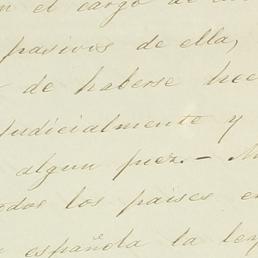 en el cargo de
pasivos de ella,
de haberse hec
judicialmente y
algun juez. - M
odos los paises e
española la ley